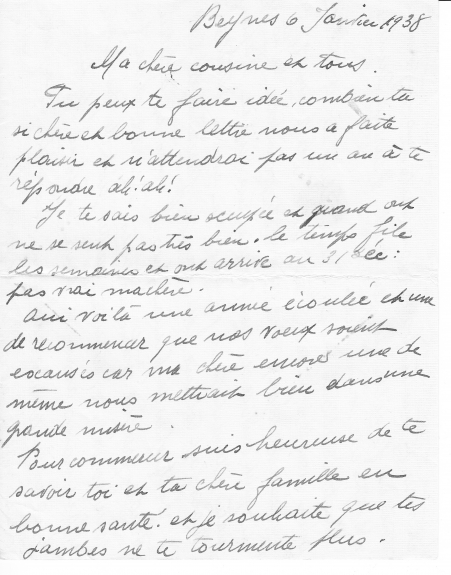 Beynes 6 Janvier 1938
Ma chère cousine et tous.
Tu peux te faire idée, combien ta
si chère et bonne lettre nous a faite
plaisir et n'attendrai pas un an à te
répondre ah! ah!
Je te sais bien occupée et quand ont
ne se sent pas très bien. le temps file
les semaines et ont arrive au 31 Déc:
pas vrai ma chère.
Oui voilà une année écoulée et une
de recommencer que nos voeux soient
excaucés car ma chère encore une de
même nous mettrait bien dans une
grande misère.
Pour commencer suis heureuse de te
savoir toi et ta chère famille en
bonne santé. et je souhaite que tes
jambes ne te tourmente plus.